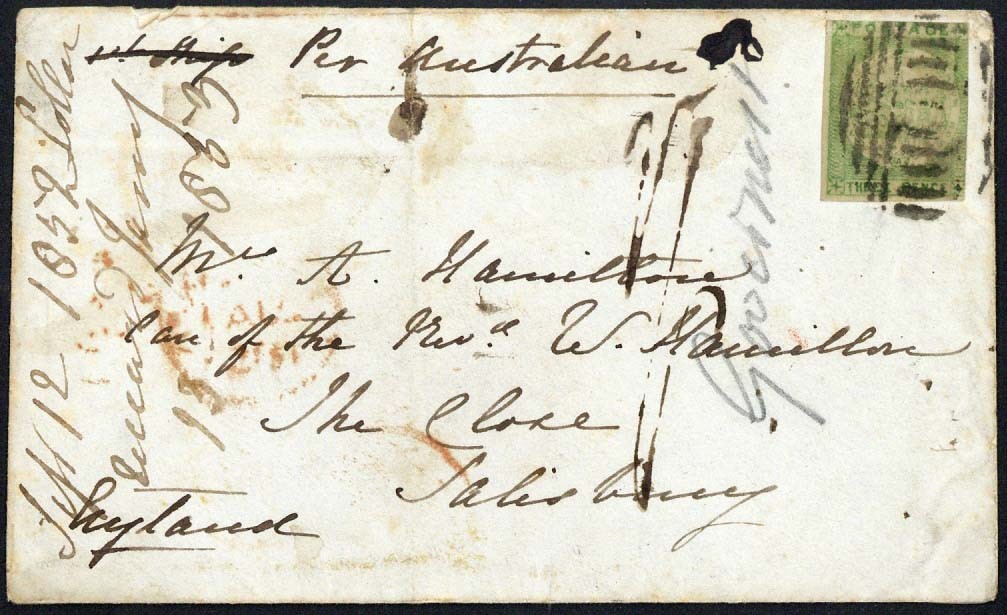 Per Australian
POSTAGE
THREE PENCE
Mrs. A. Hamilton
Care of the Revd. W. Hamilton
The Close
Salisbury
England
Sept 12 1852
Received Jany
13 1853